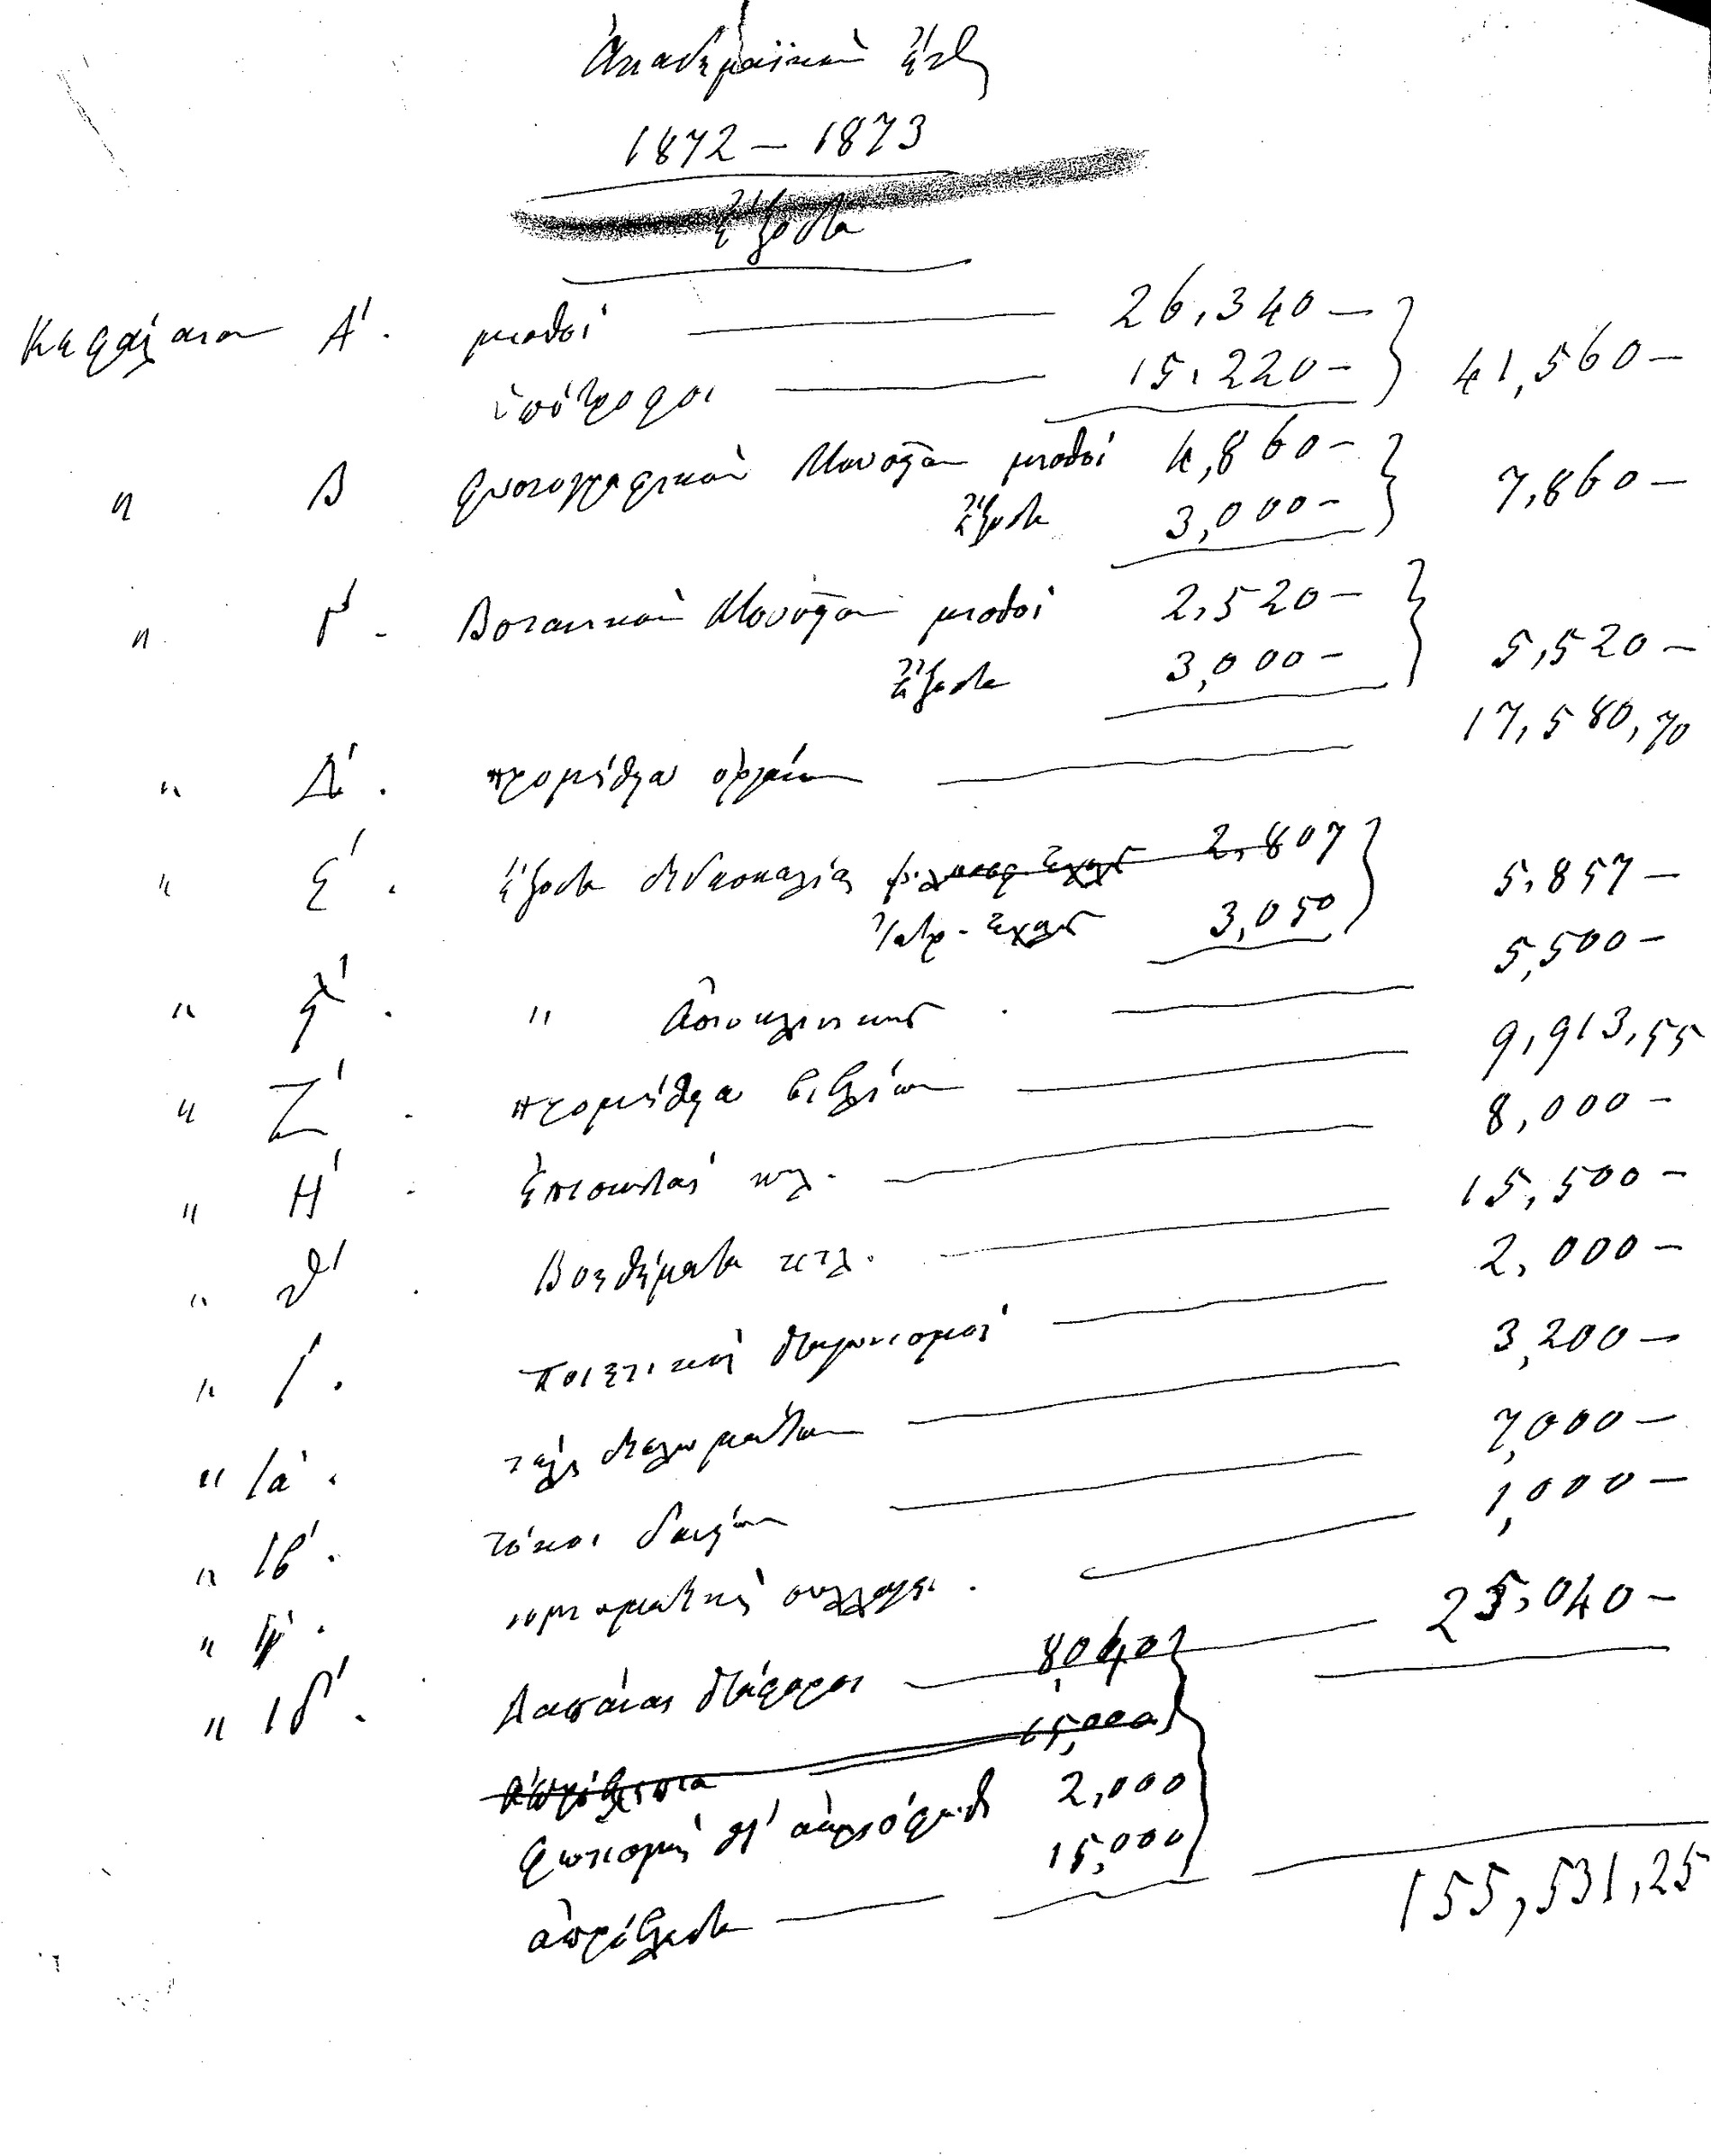 Ἀκαδημαϊκὸν ἔτος
1872 — 1873
Ἔξοδα
Κεφάλαιον Α΄. μισθοί 26,340 —
ὑπότροφοι 15,220 — 41,560 —
〃 Β φυσιογραφικὸν Μουσεῖον μισθοί 4,860 —
ἔξοδα 3,000 — 7,860 —
〃 Γ΄. Βοτανικὸν Μουσεῖον μισθοί 2,520 —
ἔξοδα 3,000 — 5,520 —
〃 Δ΄. προμήθεια ὀργάνων 17,580,70
〃 Ε΄. ἔξοδα διδασκαλίας 2,807
Ἰατρ. Σχολῆς 3,050 5,857 —
〃 Ϛ΄. 〃 Ἀστυκλινικῆς 5,500 —
〃 Ζ΄. προμήθεια βιβλίων 9,913,55
〃 Η΄. ἐπισκευαὶ κτλ. 8,000 —
〃 Θ΄. Βοηθήματα κτλ. 15,500 —
〃 Ι΄. ποιητικοὶ διαγωνισμοί 2,000 —
〃 ΙΑ΄. τέλη διπλωμάτων 3,200 —
〃 ΙΒ΄. τόκοι δανείων 7,000 —
〃 ΙΓ΄. νομισματικὴ συλλογή. 1,000 —
〃 ΙΔ΄. Δαπάναι διάφοροι 8,040 25,040 —
15,000
φωτισμὸς δι᾽ ἀεριόφωτος 2,000
ἀπρόβλεπτα 15,000
155,531,25